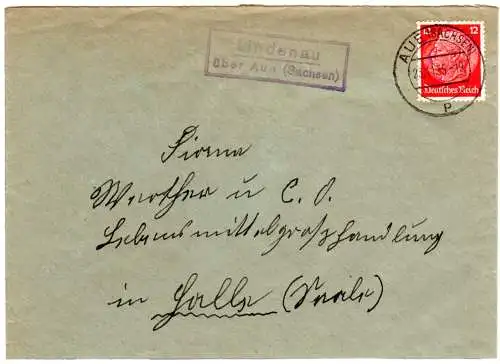 Lindenau
über Aue (Sachsen)
AUE (SACHSEN)
12
Deutsches Reich
P
Firma
Werther u. C. O.
Lebensmittelgroßhandlung
in Halle (Saale)